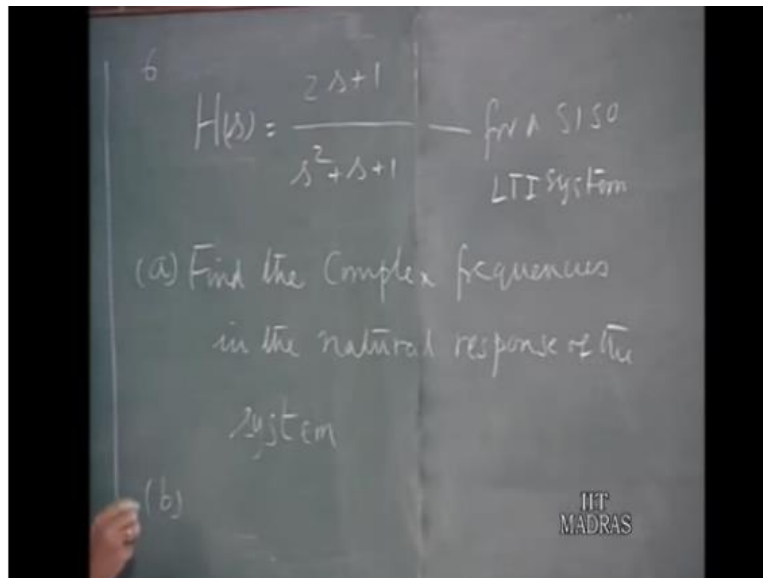 6
H(s) = 2s+1 / s²+s+1 — for a SISO
LTI system
(a) Find the Complex frequencies
in the natural response of the
system
(b)
IIT
MADRAS